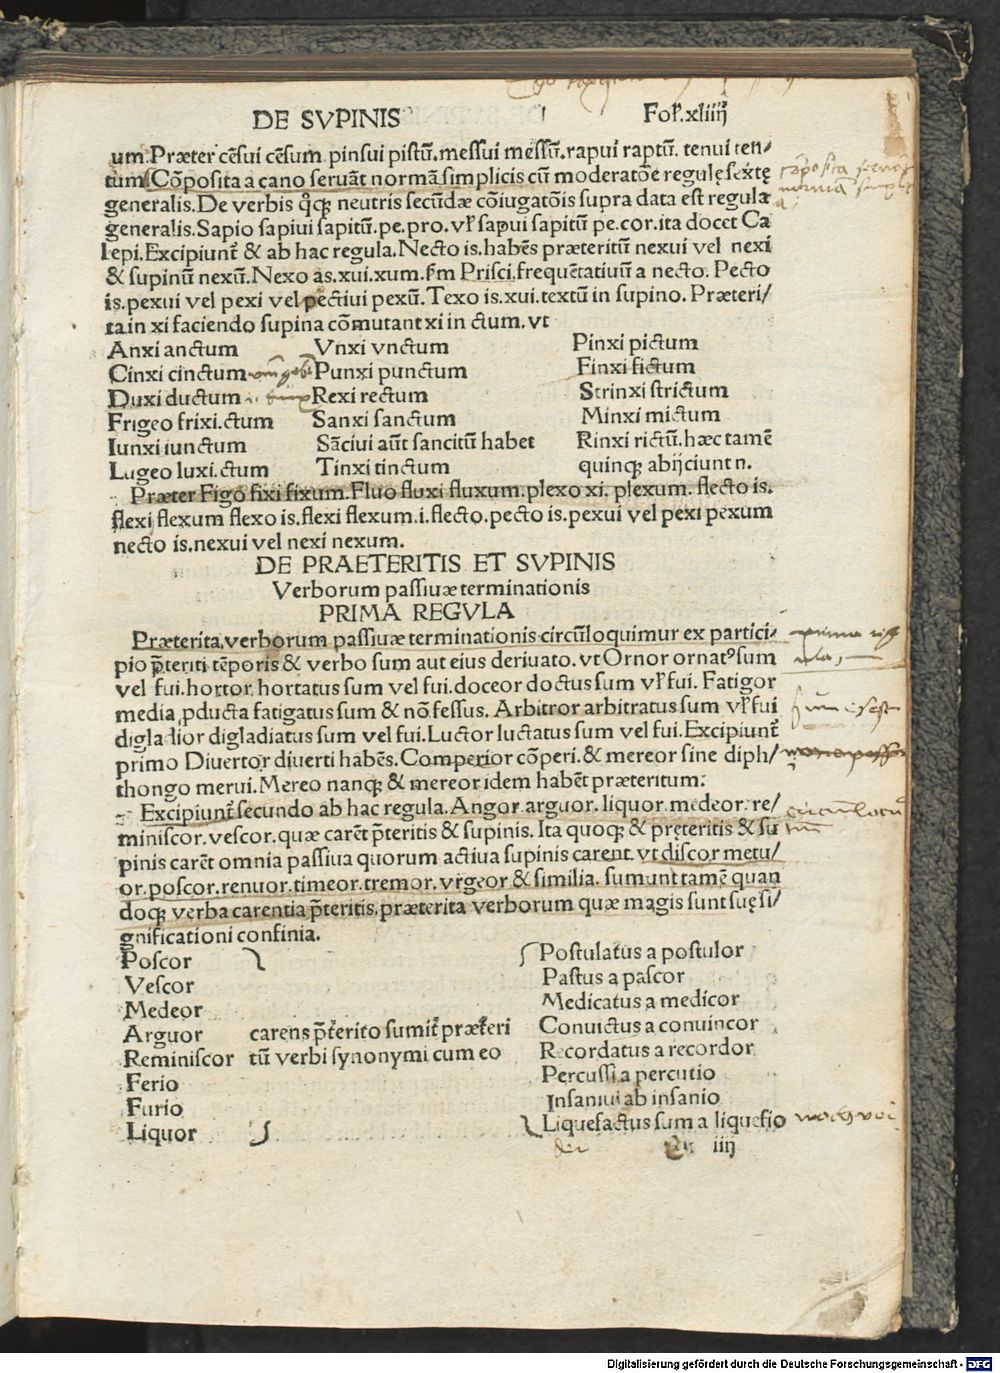 DE SVPINIS Fol. xliiij
um. Præter cẽsui cẽsum pinsui pistũ. messui messũ. rapui raptũ. tenui ten⸗
tum. Cõposita a cano seruãt normã simplicis cũ moderatõe regulę sextę
generalis. De verbis q̃q; neutris secũdæ cõiugatõis supra data est regulæ
generalis. Sapio sapiui sapitũ. pe. pro. vł sapui sapitũ pe. cor. ita docet Ca
lepi. Excipiunt̃ & ab hac regula. Necto is. habẽs præteritũ nexui vel nexi
& supinũ nexũ. Nexo as. xui. xum. fm Prisci. frequẽtatiuũ a necto. Pecto
is. pexui vel pexi vel pectiui pexũ. Texo is. xui. textũ in supino. Præteri⸗
ta in xi faciendo supina cõmutant xi in ctum. vt
Anxi anctum Vnxi vnctum Pinxi pictum
Cinxi cinctum Punxi punctum Finxi fictum
Duxi ductum Rexi rectum Strinxi strictum
Frigeo frixi. ctum Sanxi sanctum Minxi mictum
Iunxi iunctum Sãciui aũt sancitũ habet Rinxi rictũ. hæc tamẽ
Lugeo luxi. ctum Tinxi tinctum quinq; abijciunt n.
Præter Figo fixi fixum. Fluo fluxi fluxum. plexo xi. plexum. flecto is.
flexi flexum flexo is. flexi flexum. i. flecto. pecto is. pexui vel pexi pexum
necto is. nexui vel nexi nexum.
DE PRAETERITIS ET SVPINIS
Verborum passiuæ terminationis
PRIMA REGVLA
Præterita verborum passiuæ terminationis circũloquimur ex partici⸗
pio p̃teriti tẽporis & verbo sum aut eius deriuato. vt Ornor ornatꝰ sum
vel fui. hortor. hortatus sum vel fui. doceor doctus sum vł fui. Fatigor
media ꝓducta fatigatus sum & nõ fessus. Arbitror arbitratus sum vł fui
digladior digladiatus sum vel fui. Luctor luctatus sum vel fui. Excipiunt̃
primo Diuertor diuerti habẽs. Comperior cõperi. & mereor sine diph⸗
thongo merui. Mereo nanq; & mereor idem habẽt præteritum:
Excipiunt̃ secundo ab hac regula. Angor. arguor. liquor. medeor. re⸗
miniscor. vescor. quæ carẽt p̃teritis & supinis. Ita quoq; & pręteritis & su
pinis carẽt omnia passiua quorum actiua supinis carent. vt discor metu⸗
or. poscor. renuor. timeor. tremor. vrgeor & similia. sumunt tamẽ quan
doq; verba carentia p̃teritis. præterita verborum quæ magis sunt suę si⸗
gnificationi confinia.
Poscor Postulatus a postulor
Vescor Pastus a pascor
Medeor Medicatus a medicor
Arguor carens p̃terito sumit̃ præteri Conuictus a conuincor
Reminiscor tũ verbi synonymi cum eo Recordatus a recordor
Ferio Percussi a percutio
Furio Insaniui ab insanio
Liquor Liquefactus sum a liquefio
iiij
cõposita
prima
Digitalisierung gefördert durch die Deutsche Forschungsgemeinschaft - DFG